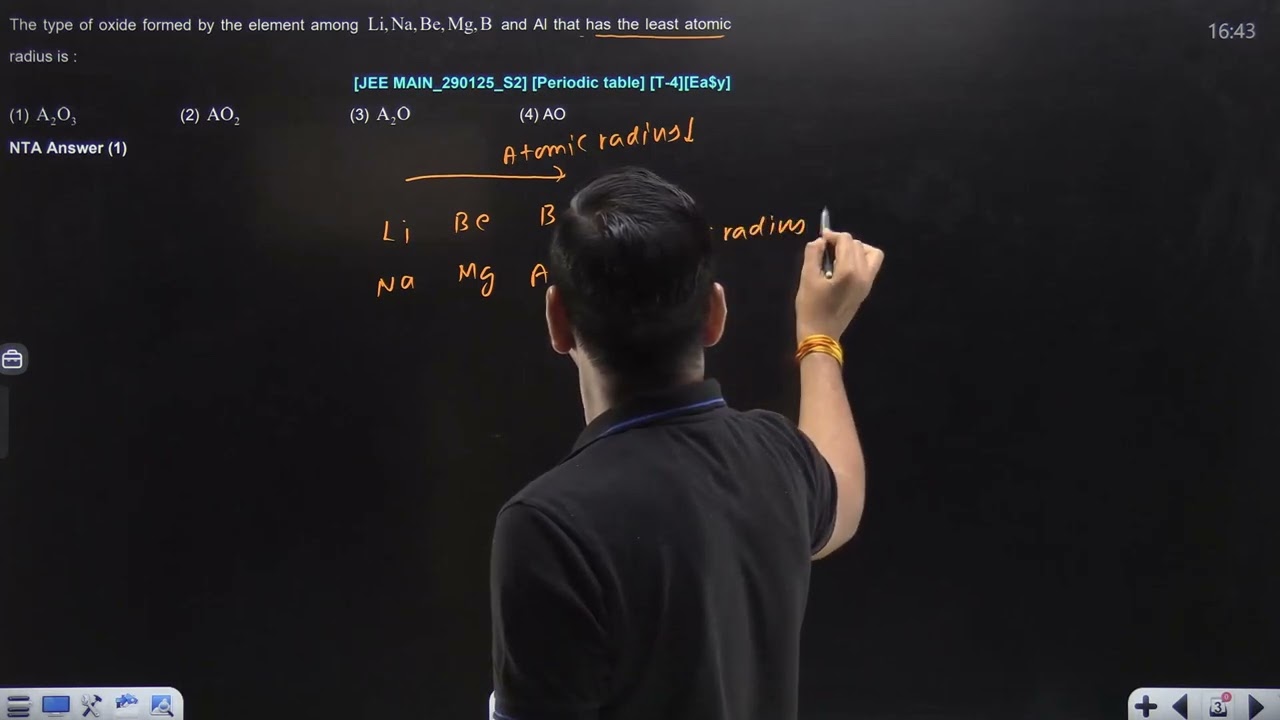 The type of oxide formed by the element among Li, Na, Be, Mg, B and Al that has the least atomic
radius is :
16:43
[JEE MAIN_290125_S2] [Periodic table] [T-4][Ea$y]
(1) A₂O₃ (2) AO₂ (3) A₂O (4) AO
NTA Answer (1)
Atomic radius↓
Li Be B radius
Na Mg A
3
0